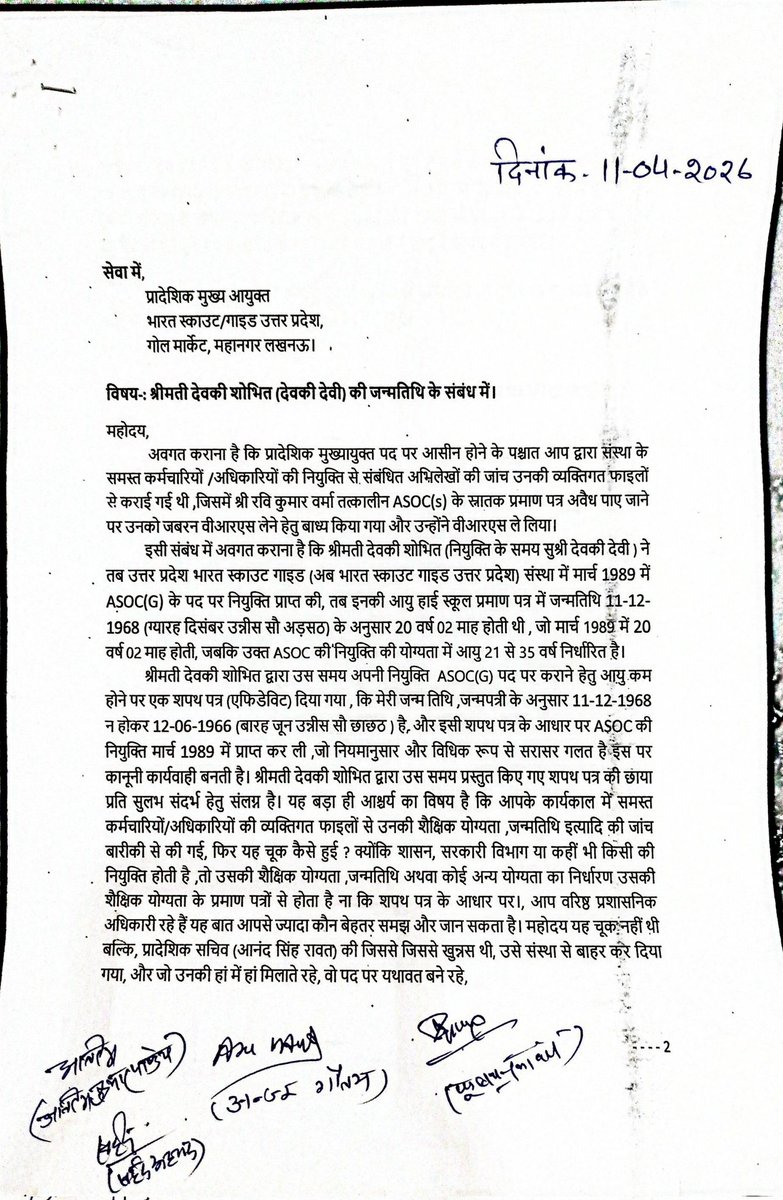 दिनांक- 11-04-2026
सेवा में,
प्रादेशिक मुख्य आयुक्त
भारत स्काउट/गाइड उत्तर प्रदेश,
गोल मार्केट, महानगर लखनऊ।
विषय-: श्रीमती देवकी शोभित (देवकी देवी) की जन्मतिथि के संबंध में।
महोदय,
अवगत कराना है कि प्रादेशिक मुख्यायुक्त पद पर आसीन होने के पश्चात आप द्वारा संस्था के
समस्त कर्मचारियों /अधिकारियों की नियुक्ति से संबंधित अभिलेखों की जांच उनकी व्यक्तिगत फाइलों
से कराई गई थी ,जिसमें श्री रवि कुमार वर्मा तत्कालीन ASOC(s) के स्नातक प्रमाण पत्र अवैध पाए जाने
पर उनको जबरन वीआरएस लेने हेतु बाध्य किया गया और उन्होंने वीआरएस ले लिया।
इसी संबंध में अवगत कराना है कि श्रीमती देवकी शोभित (नियुक्ति के समय सुश्री देवकी देवी ) ने
तब उत्तर प्रदेश भारत स्काउट गाइड (अब भारत स्काउट गाइड उत्तर प्रदेश) संस्था में मार्च 1989 में
ASOC(G) के पद पर नियुक्ति प्राप्त की, तब इनकी आयु हाई स्कूल प्रमाण पत्र में जन्मतिथि 11-12-
1968 (ग्यारह दिसंबर उन्नीस सौ अड़सठ) के अनुसार 20 वर्ष 02 माह होती थी , जो मार्च 1989 में 20
वर्ष 02 माह होती, जबकि उक्त ASOC की नियुक्ति की योग्यता में आयु 21 से 35 वर्ष निर्धारित है।
श्रीमती देवकी शोभित द्वारा उस समय अपनी नियुक्ति ASOC(G) पद पर कराने हेतु आयु कम
होने पर एक शपथ पत्र (एफिडेविट) दिया गया , कि मेरी जन्म तिथि ,जन्मपत्री के अनुसार 11-12-1968
न होकर 12-06-1966 (बारह जून उन्नीस सौ छाछठ ) है, और इसी शपथ पत्र के आधार पर ASOC की
नियुक्ति मार्च 1989 में प्राप्त कर ली ,जो नियमानुसार और विधिक रूप से सरासर गलत है इस पर
कानूनी कार्यवाही बनती है। श्रीमती देवकी शोभित द्वारा उस समय प्रस्तुत किए गए शपथ पत्र की छाया
प्रति सुलभ संदर्भ हेतु संलग्न है। यह बड़ा ही आश्चर्य का विषय है कि आपके कार्यकाल में समस्त
कर्मचारियों/अधिकारियों की व्यक्तिगत फाइलों से उनकी शैक्षिक योग्यता ,जन्मतिथि इत्यादि की जांच
बारीकी से की गई, फिर यह चूक कैसे हुई ? क्योंकि शासन, सरकारी विभाग या कहीं भी किसी की
नियुक्ति होती है ,तो उसकी शैक्षिक योग्यता ,जन्मतिथि अथवा कोई अन्य योग्यता का निर्धारण उसकी
शैक्षिक योग्यता के प्रमाण पत्रों से होता है ना कि शपथ पत्र के आधार पर।, आप वरिष्ठ प्रशासनिक
अधिकारी रहे हैं यह बात आपसे ज्यादा कौन बेहतर समझ और जान सकता है। महोदय यह चूक नहीं थी
बल्कि, प्रादेशिक सचिव (आनंद सिंह रावत) की जिससे जिससे खुन्नस थी, उसे संस्था से बाहर कर दिया
गया, और जो उनकी हां में हां मिलाते रहे, वो पद पर यथावत बने रहे,
----2